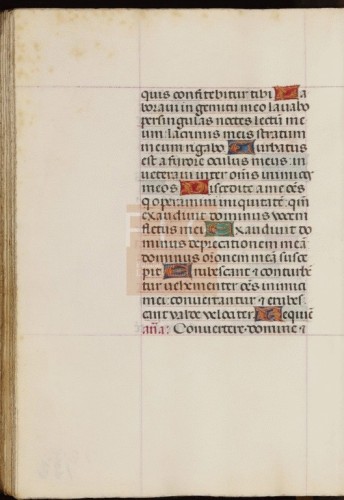 quis confitebitur tibi La
boravi in gemitu meo lavabo
per singulas noctes lectū me
um: lacrimis meis stratum
meum rigabo Turbatus
est a furore oculus meus: in
veteravi inter om̄s inimicos
meos Discedite a me oēs
q operamini iniquitatē: qm̄
exaudivit dominus vocem
fletus mei Exaudivit do
minus deprecationem meā
dominus orōnem meā susce
pit Erubescant & conturbē
tur vehementer oēs inimici
mei: convertantur & erubes
cant valde velociter Requiē
an̄a: Convertere domine &